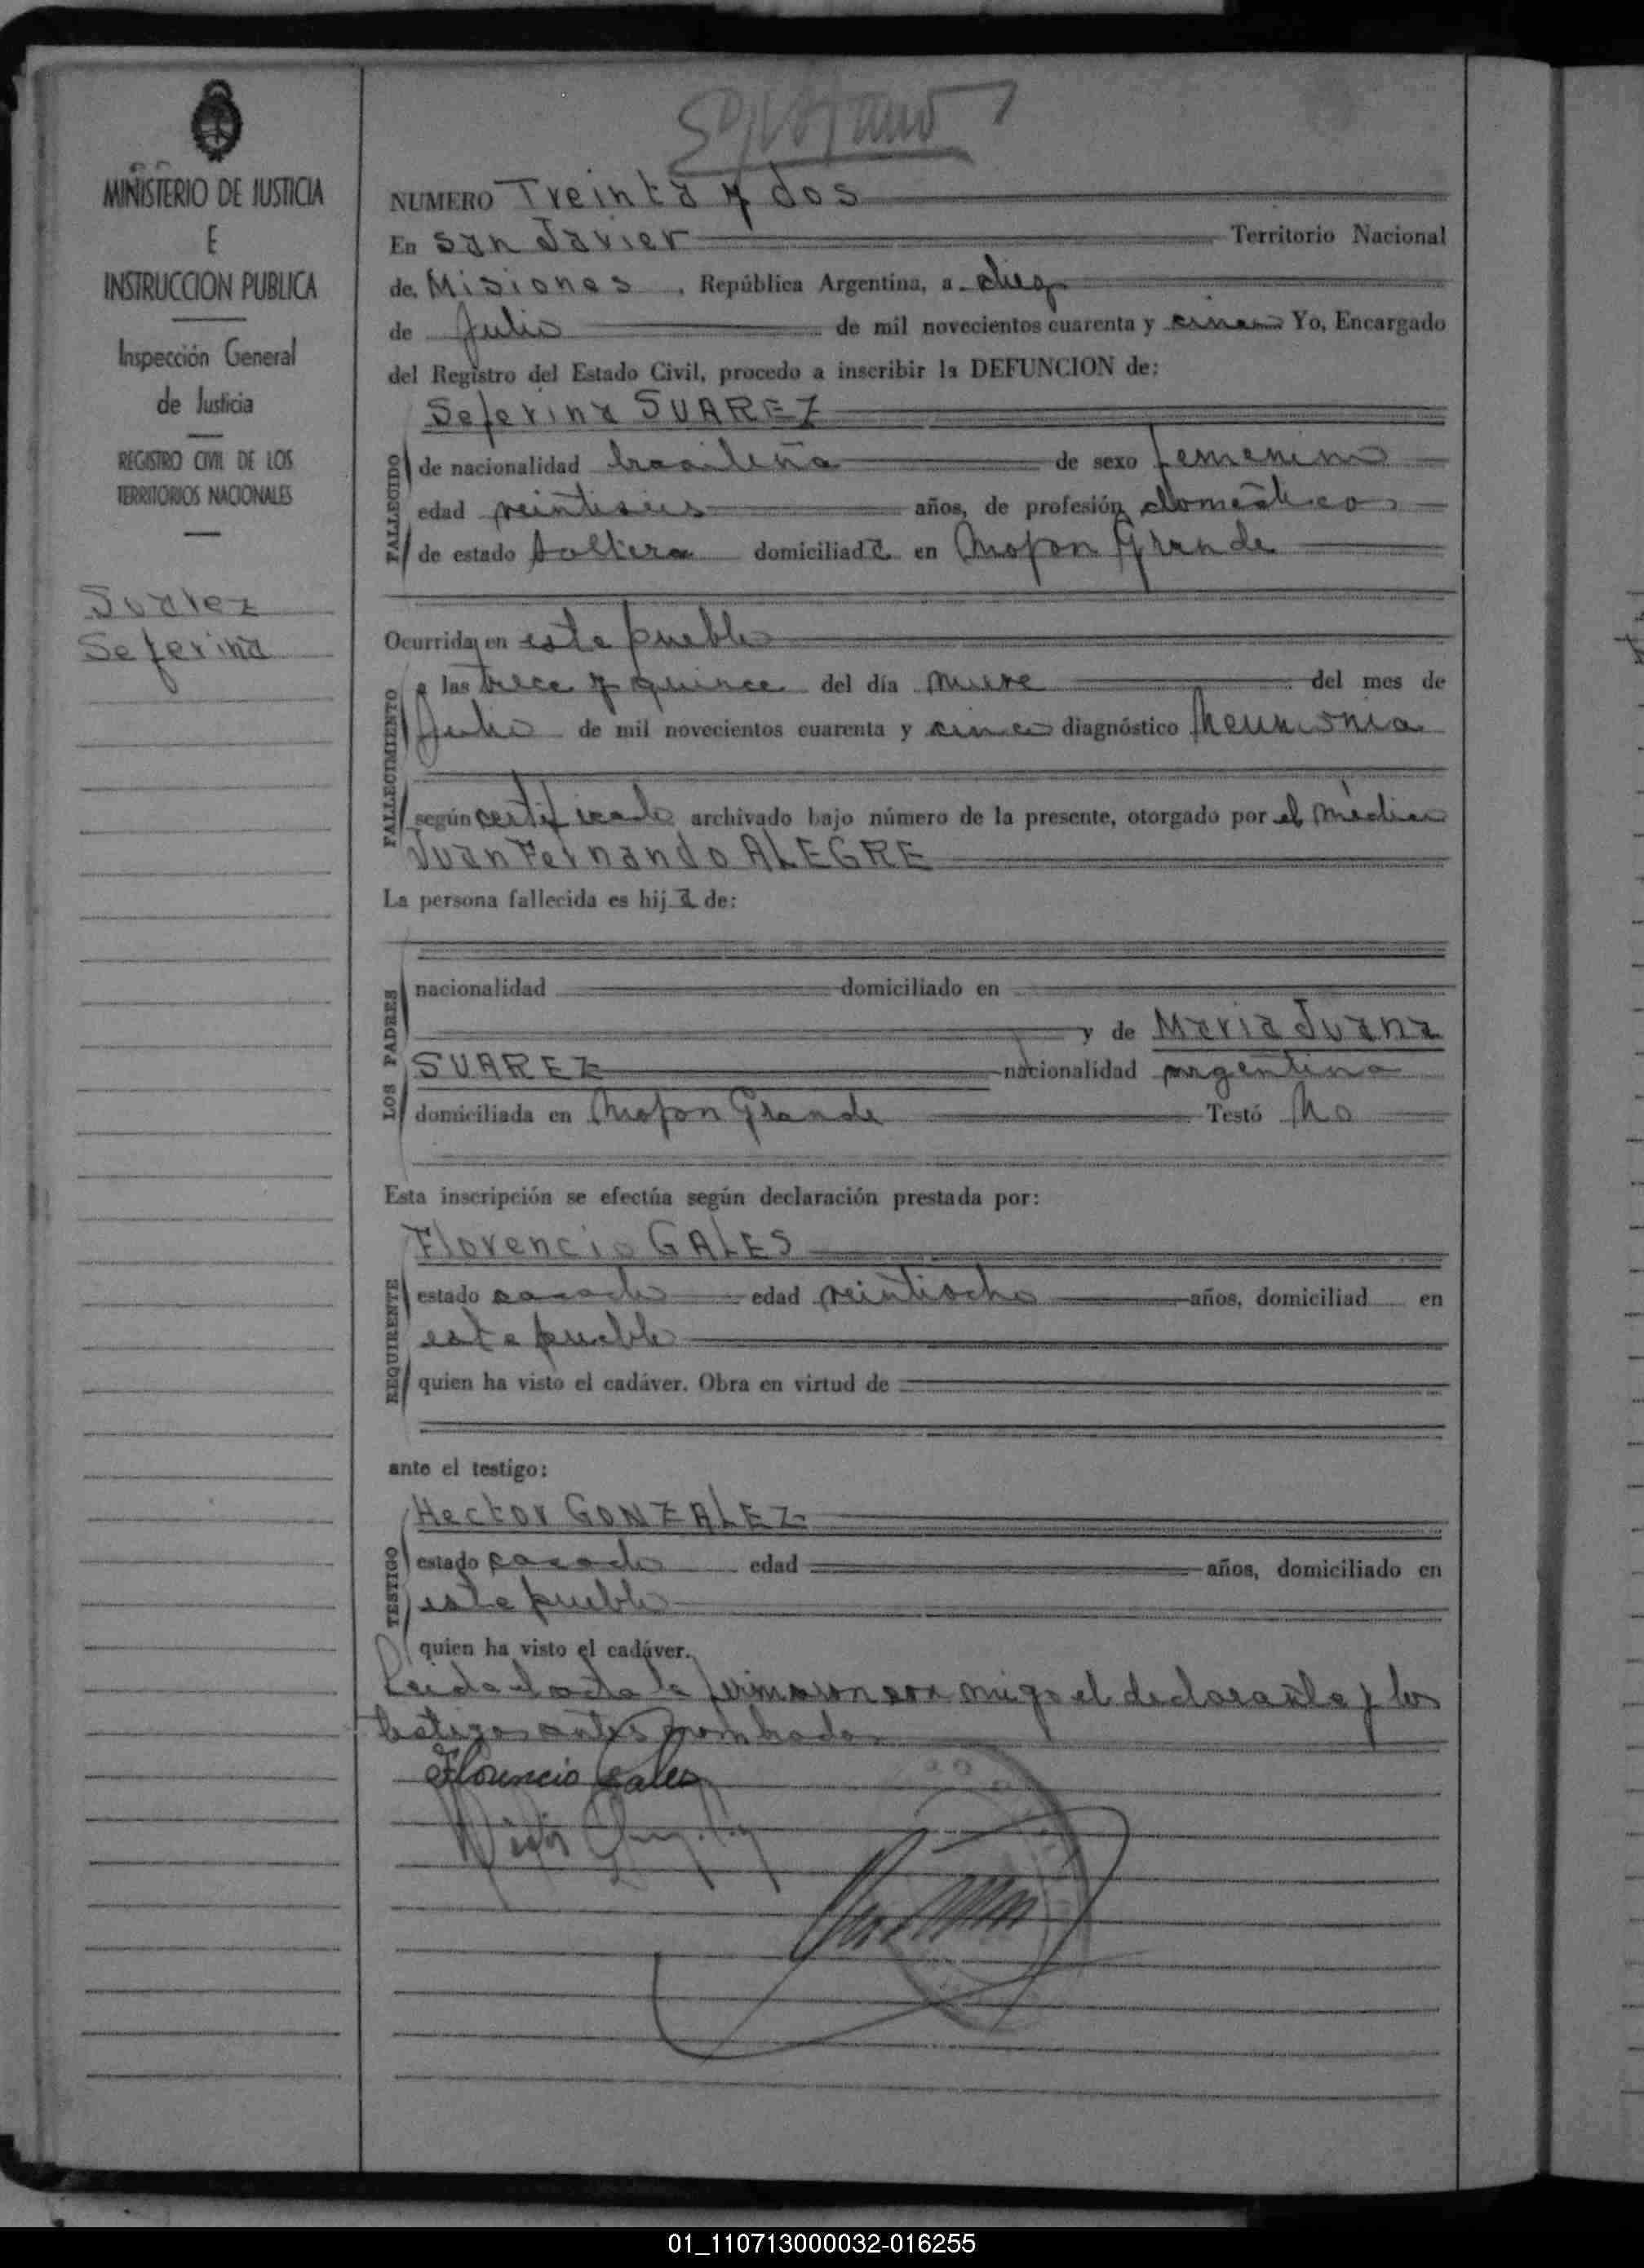 MINISTERIO DE JUSTICIA
E
INSTRUCCION PUBLICA
Inspección General
de Justicia
REGISTRO CIVIL DE LOS
TERRITORIOS NACIONALES
Suarez
Seferina
NUMERO Treinta y dos
En San Javier Territorio Nacional
de Misiones, República Argentina, a diez
de Julio de mil novecientos cuarenta y cinco Yo, Encargado
del Registro del Estado Civil, procedo a inscribir la DEFUNCION de:
Seferina SUAREZ
FALLECIDO
de nacionalidad brasileña de sexo femenino
edad veintiseis años, de profesión domestica
de estado soltera domiciliada en Mojon Grande
Ocurrida en este pueblo
FALLECIMIENTO
a las trece y quince del día nueve del mes de
Julio de mil novecientos cuarenta y cinco diagnóstico Neumonia
según certificado archivado bajo número de la presente, otorgado por el médico
Juan Fernando ALEGRE
La persona fallecida es hija de:
LOS PADRES
nacionalidad domiciliado en
y de Maria Juana
SUAREZ nacionalidad argentina
domiciliada en Mojon Grande Testó No
Esta inscripción se efectúa según declaración prestada por:
Florencio GALES
REQUIRENTE
estado casado edad veintiocho años, domiciliad en
este pueblo
quien ha visto el cadáver. Obra en virtud de
ante el testigo:
Hector GONZALEZ
TESTIGO
estado casado edad años, domiciliado en
este pueblo
quien ha visto el cadáver.
Leida el acta la firmaron con migo el declarante y los
testigos antes nombrados
Florencio Gales
01_110713000032-016255